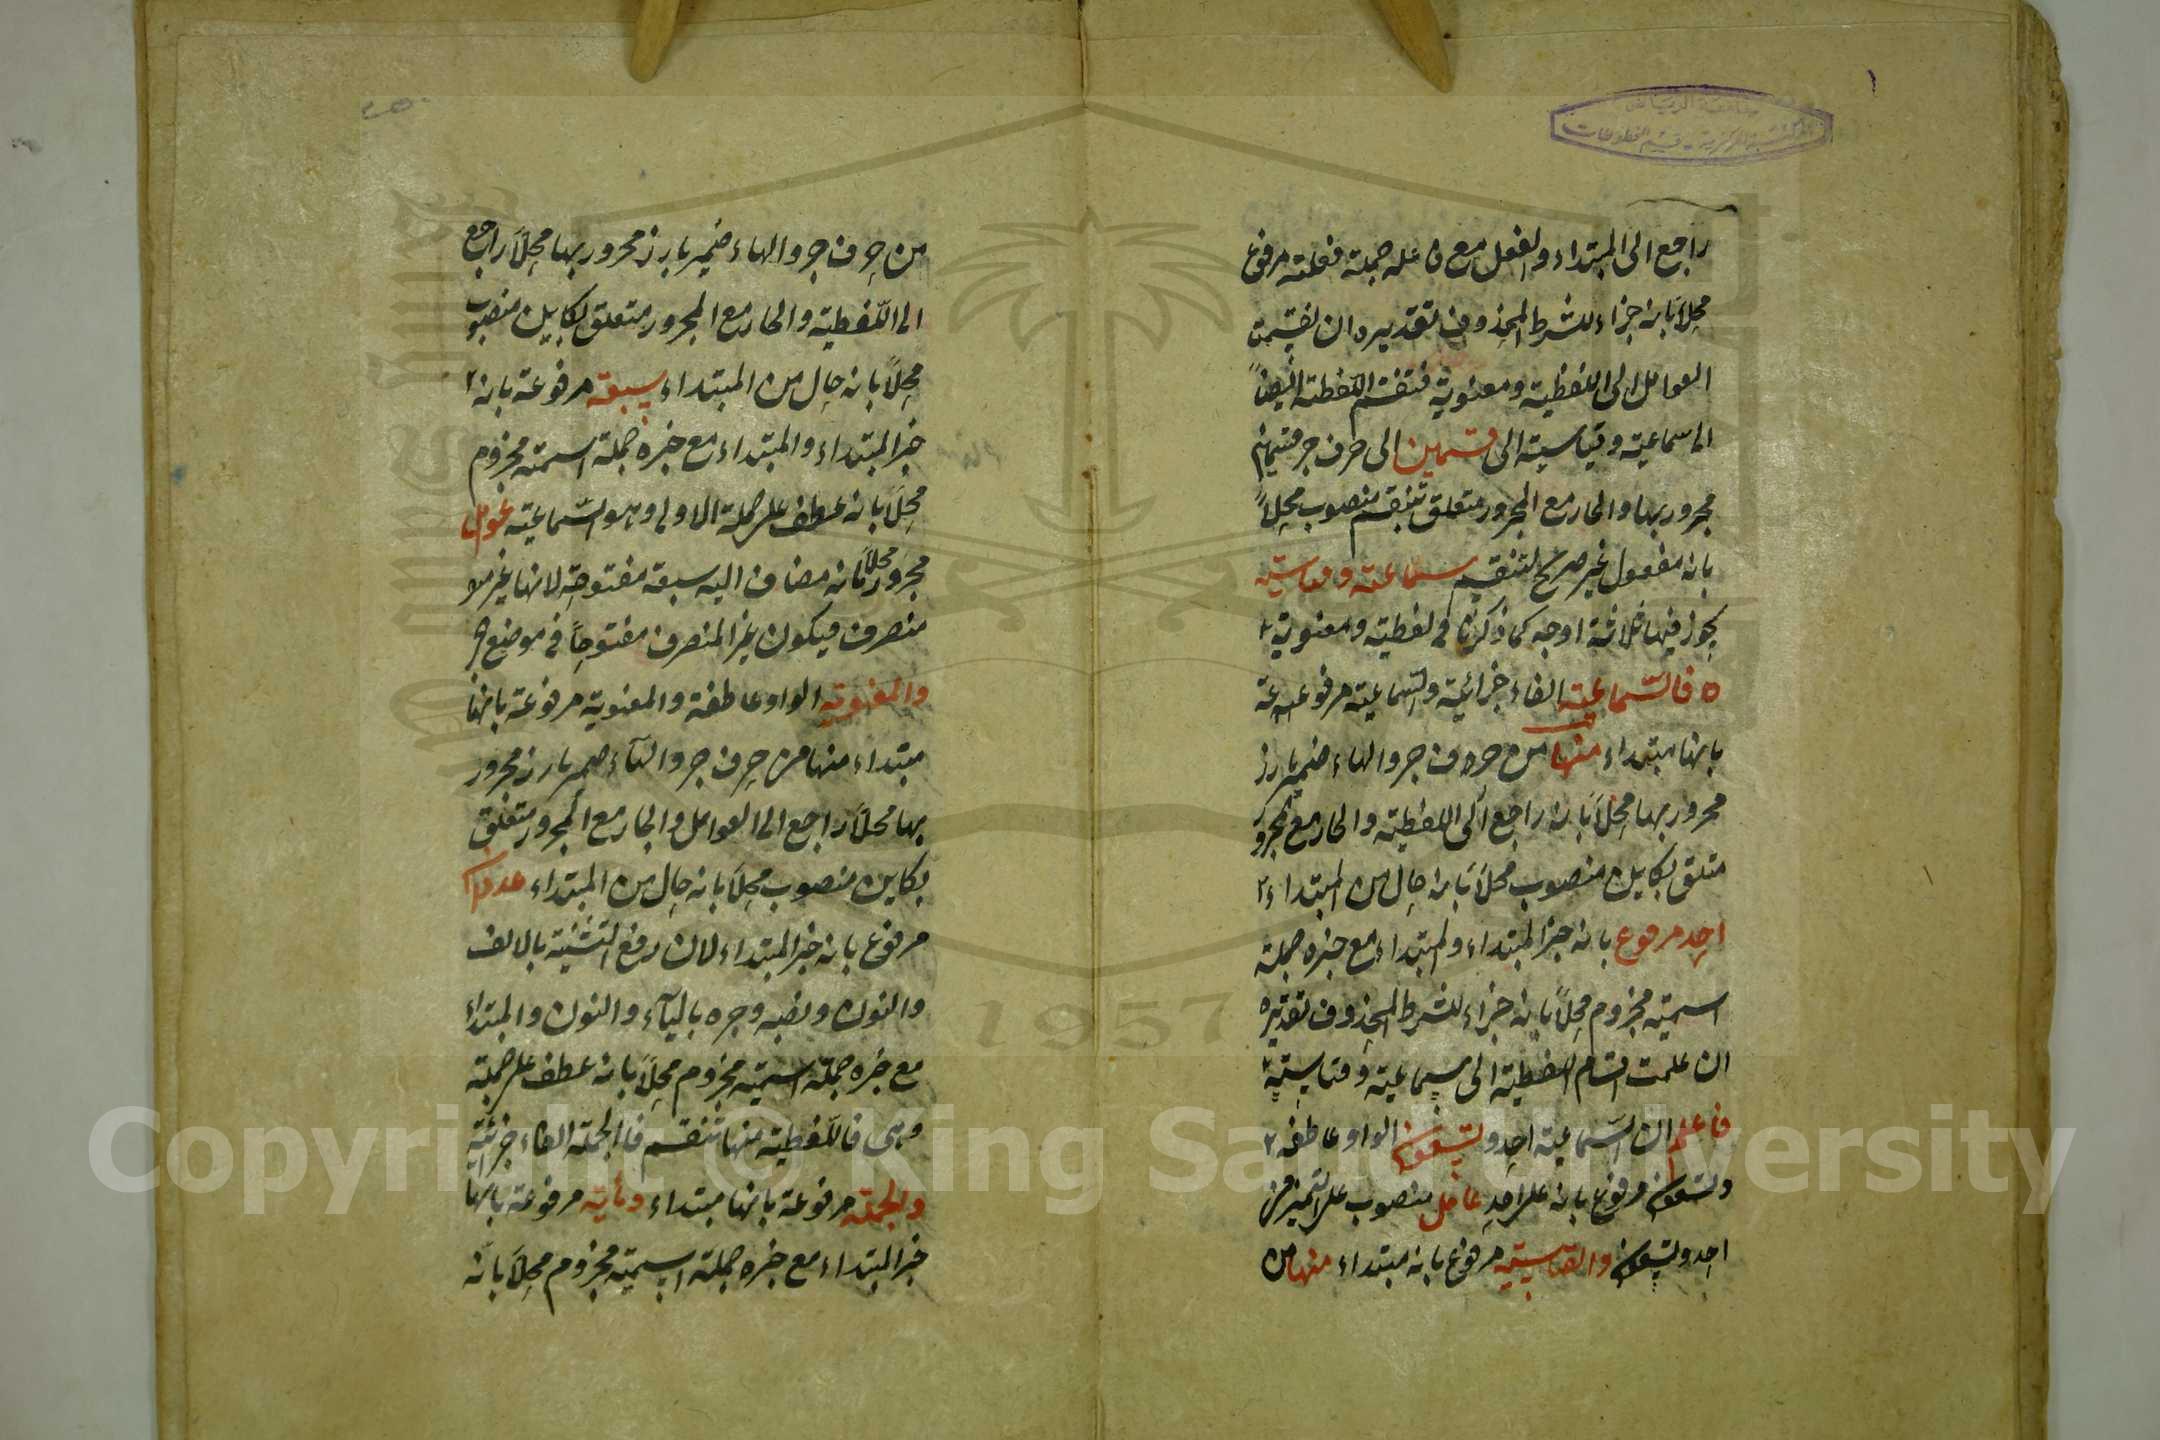 راجع الى المبتداء والفعل مع فاعله جملة فعلية مرفوع
محلاً بانه جزاء للشرط المحذوف تقديره ان تقسمت
العوامل الى اللفظية ومعنوية فتنقسم اللفظية ايضاً
الى سماعية وقياسية الى قسمين الى حرف جر قسمين
مجرور بها والجار مع المجرور متعلق تنقسم منصوب محلاً
بانه مفعول غير صريح لتنقسم سماعية وقياسية
يجوز فيها ثلاثة اوجه كما ذكرنا في لفظية ومعنوية
فالسماعية الفاء جزائية والسماعية مرفوعة
بانها مبتداء منها من حروف جر والهاء ضمير بارز
مجرور بها محلاً بانه راجع الى اللفظية والجار مع المجرور
متلق بكاين منصوب محلاً بانه حال من المبتداء
احد مرفوع بانه خبر المبتداء والمبتداء مع خبره جملة
اسمية مجزوم محلاً بانه جزاء للشرط المحذوف تقديره
ان علمت اقسام اللفظية الى سماعية وقياسية
فاعلم ان السماعية احد وتسعون الواو عاطفة
وتسعون مرفوع بانه على احد عامل منصوب على التميز من
احد وتسعون والقياسية مرفوع بانه مبتداء منها من
من حرف جر والهاء ضمير بارز مجرور بها محلاً راجع
الى اللفظية والجار مع المجرور متعلق بكاين منصوب
محلاً بانه حال من المبتداء سبعة مرفوعة بانه
خبر المبتداء والمبتداء مع خبره جملة اسمية مجزوم
محلاً بانه عطف على جملة الاولى وهو السماعية عوامل
مجرور محلاً بانه مضاف اليه سبعة مفتوحة لانها غير
منصرف فيكون غير المنصرف مفتوحاً في موضع
والمعنوية الواو عاطفة والمعنوية مرفوعة بانها
مبتداء منها من حرف جر والهاء ضمير بارز مجرور
بها محلاً راجع الى العوامل والجار مع المجرور متعلق
بكاين منصوب محلاً بانه حال من المبتداء عددان
مرفوع بانه خبر المبتداء لان رفع التثنية بالالف
والنون ونصبه وجره بالياء والنون والمبتداء
مع خبره جملة اسمية مجزوم محلاً بانه عطف على جملة
وهى فاللفظية منها تنقسم فالجملة الفاء جزائية
والجملة مرفوعة بانها مبتداء ومائة مرفوعة بانها
خبر المبتداء مع خبره جملة اسمية مجزوم محلاً بانه
1957
Copyright © King Saud University